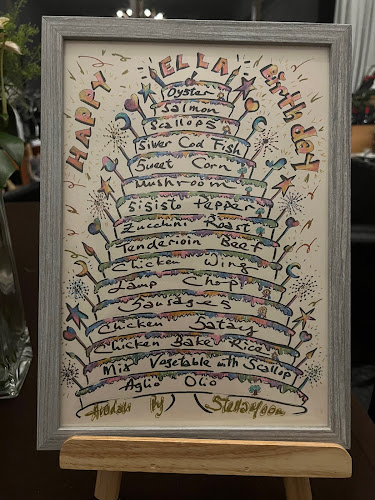 HAPPY ELLA Birthday
Oyster
Salmon
Scallops
Silver Cod Fish
Sweet Corn
Mushroom
Sisisto Pepper
Zucchini Roast
Tenderioin Beef
Chicken Wing
Lamp Chop
Sausages
Chicken Satay
Chicken Bake Rice
Mix Vegetable with Scallop
Aglio Olio
By StellaYoon